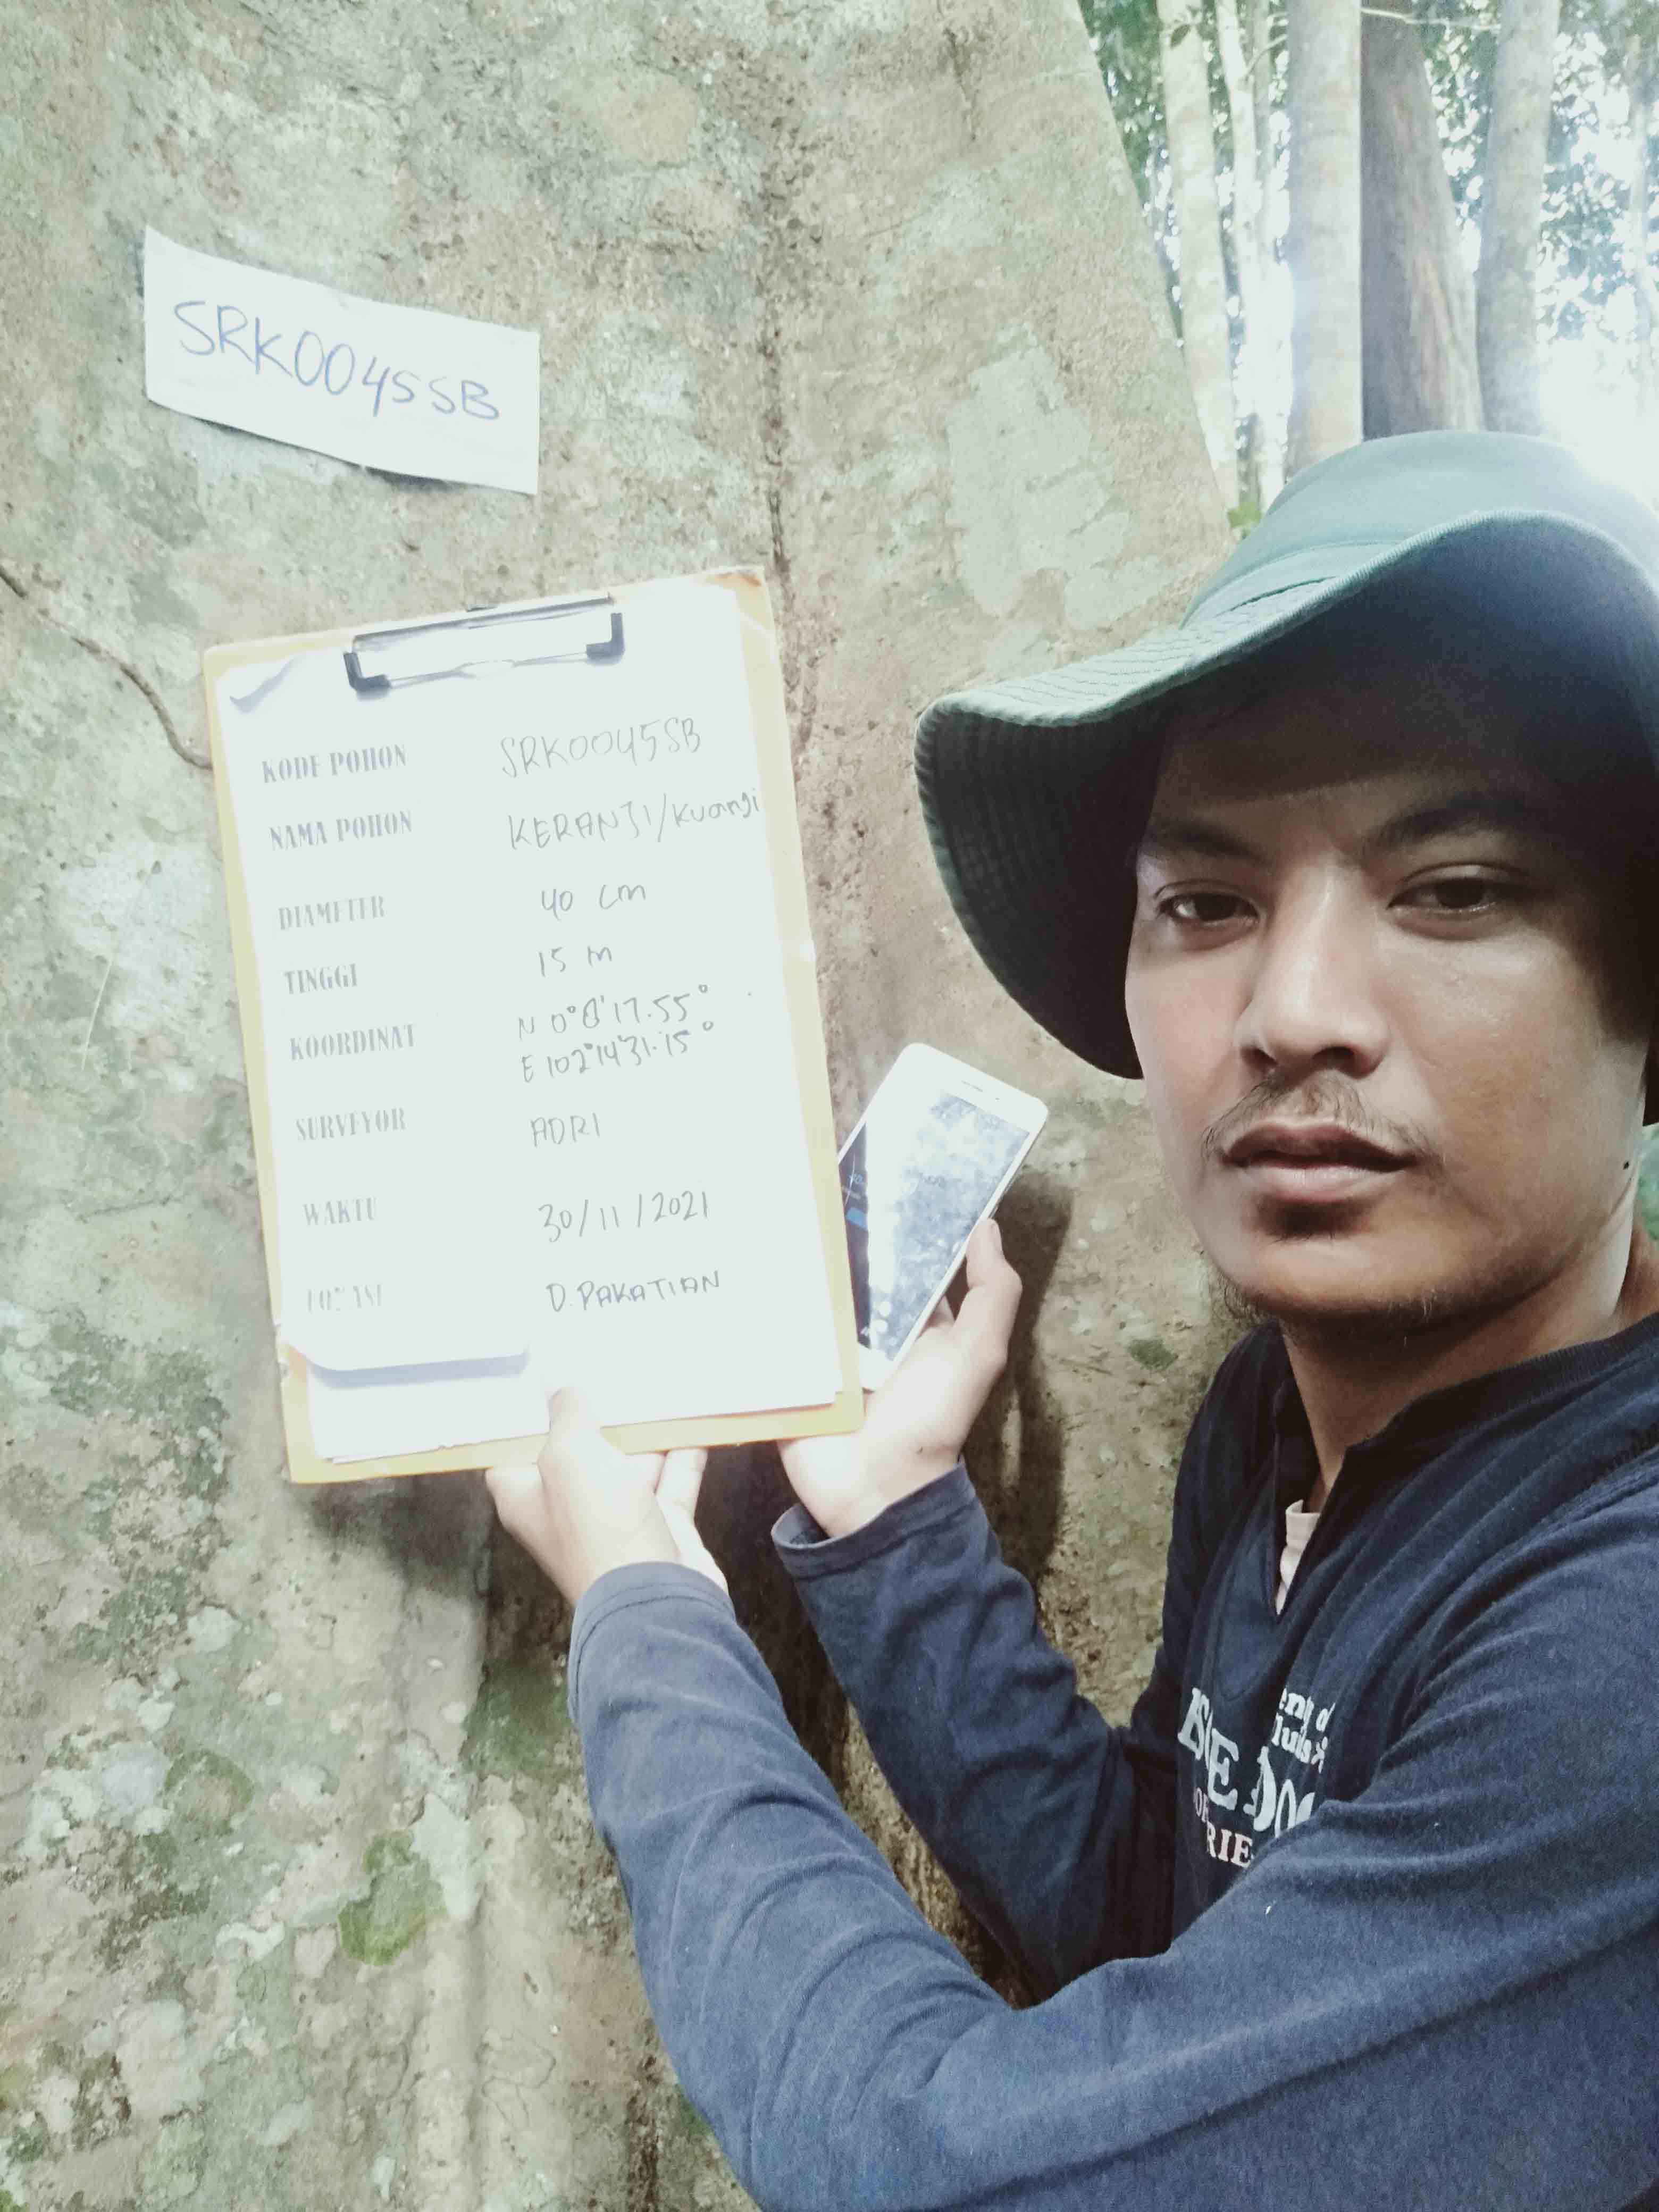 SRK0045SB
KODE POHON SRK0045SB
NAMA POHON KERANJI/Kuanji
DIAMETER 40 cm
TINGGI 15 m
KOORDINAT N 0°8'17.55°
E 102°14'31.15°
SURVEYOR ADRI
WAKTU 30/11/2021
LOKASI D. PAKATIAN